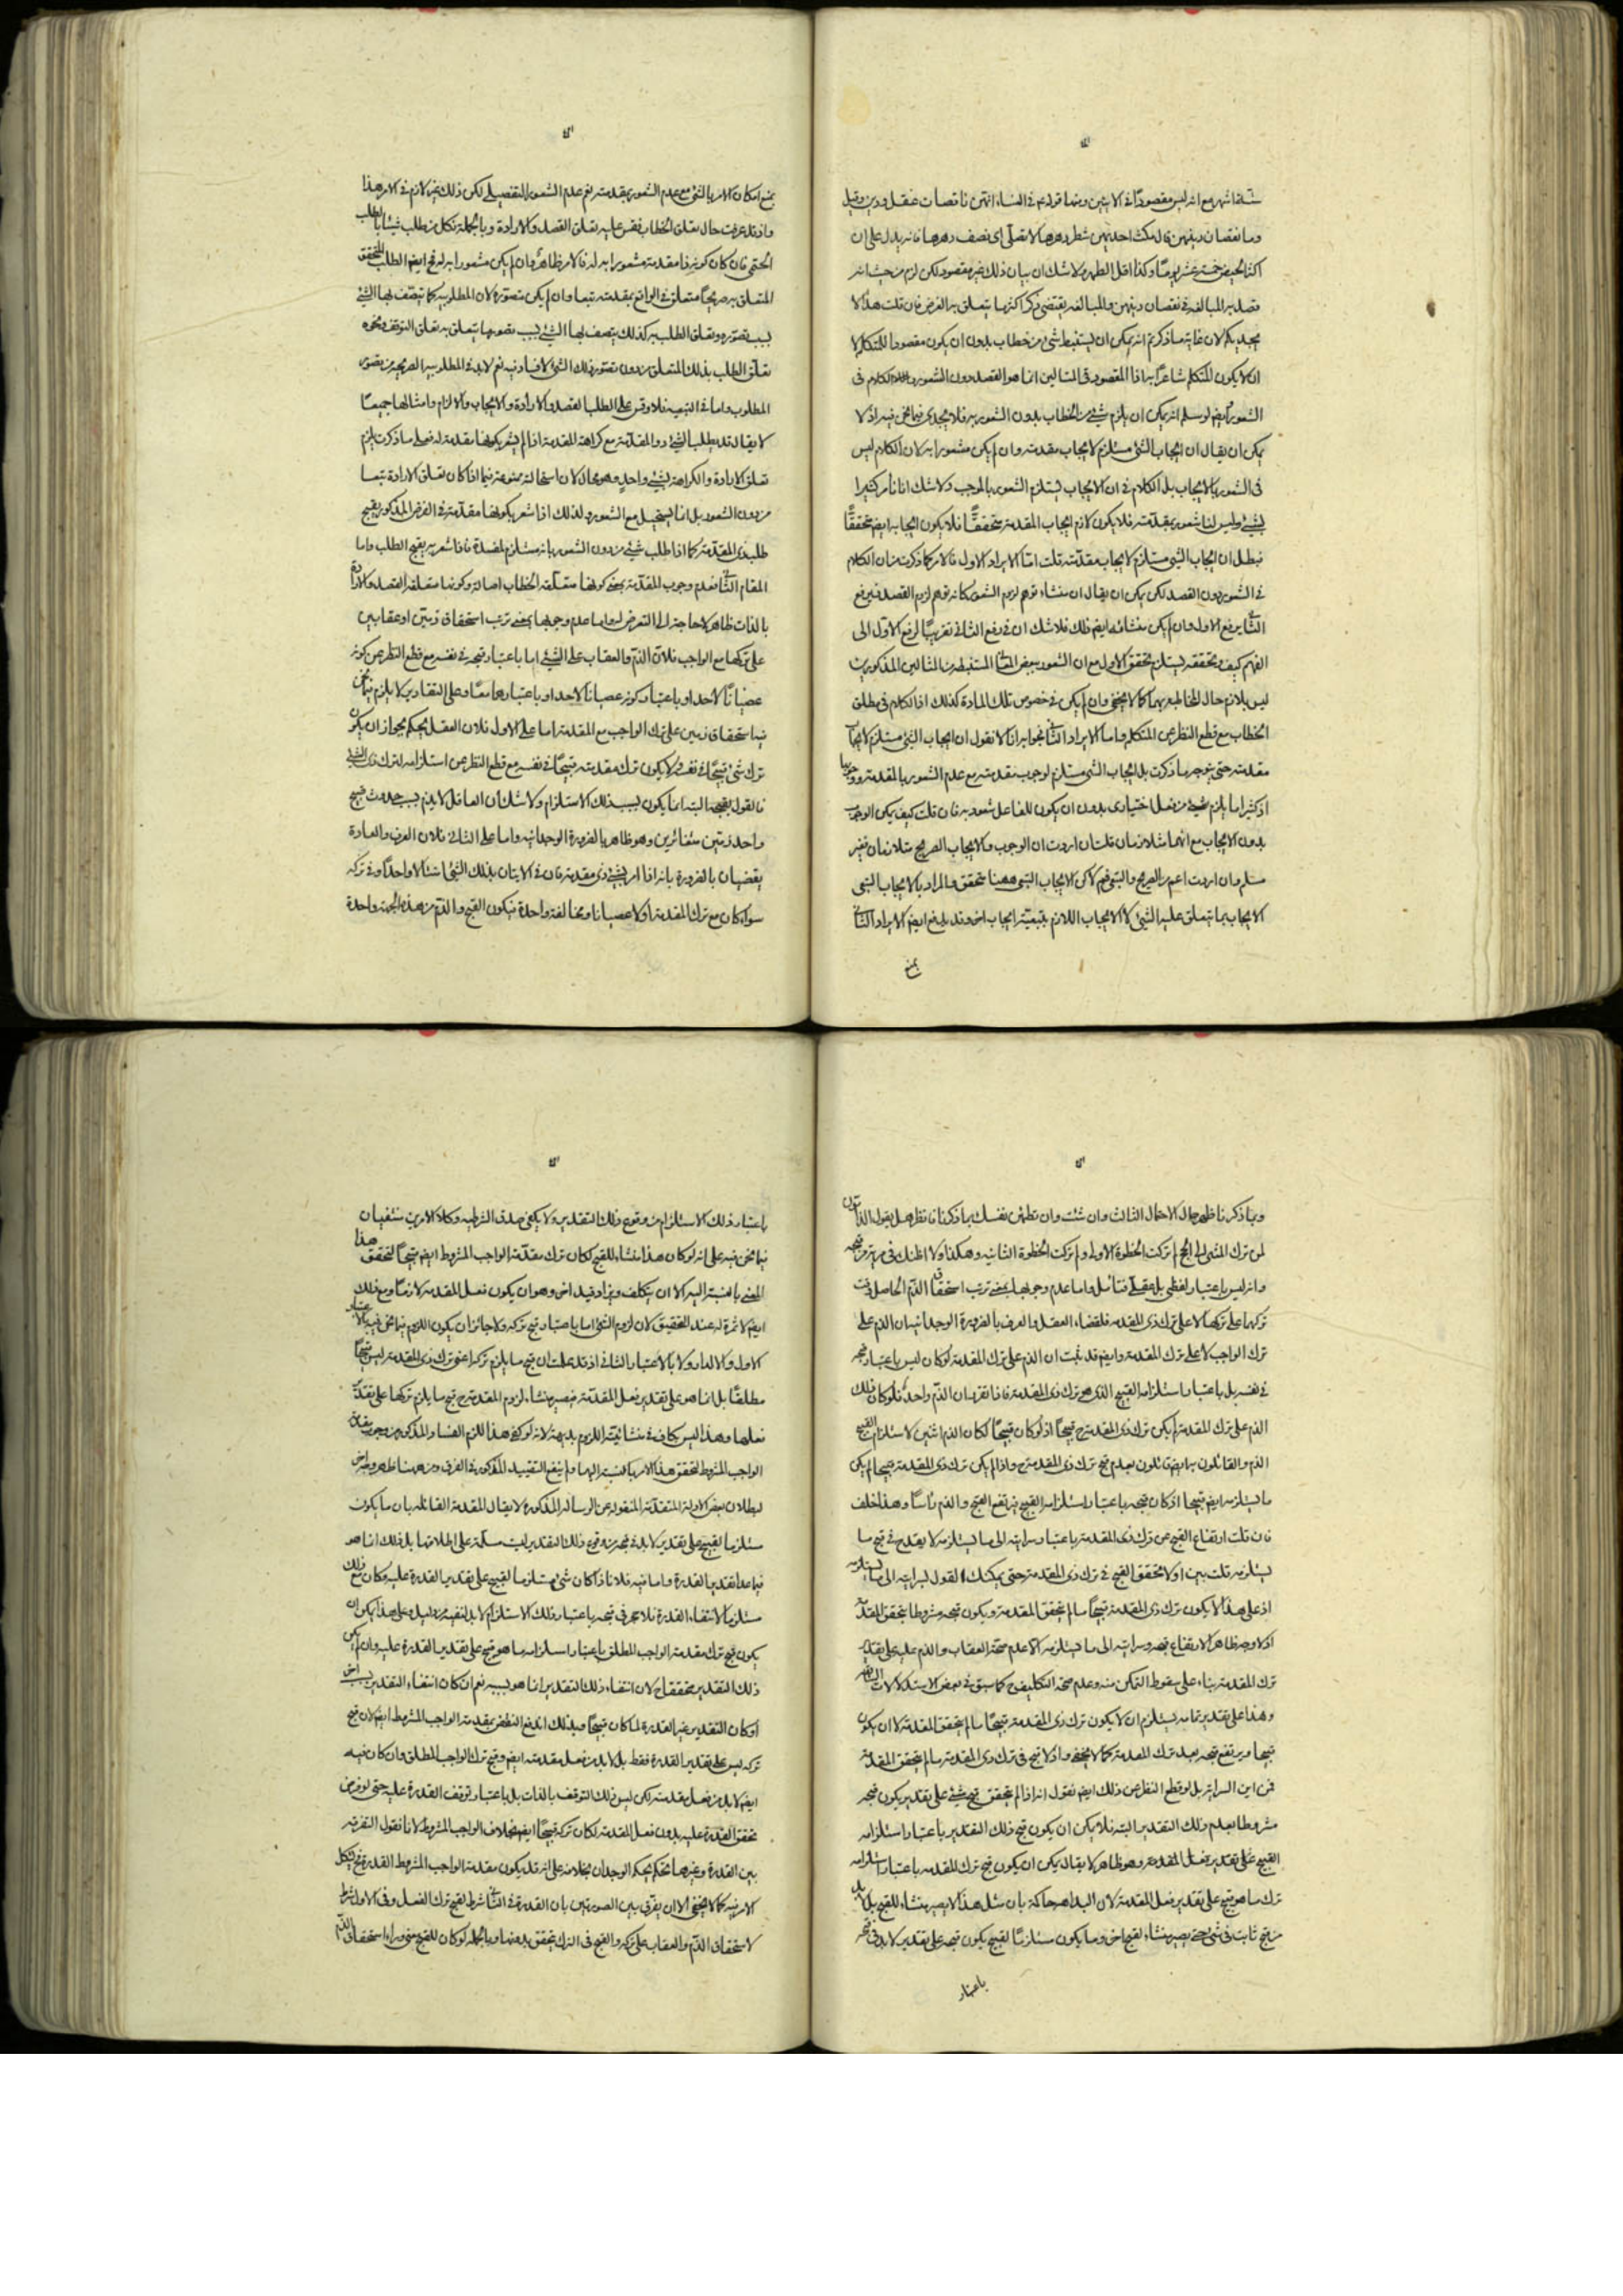 ستة اشهر مع انه ليس مقصودًا في الايتين ومنها قوله ع في النساء انهن ناقصات عقل ودين وقيل
وما نقصان دينهن قال تمكث احديهن شطر دهرها لا تصلى اى نصف دهرها فانه يدل على ان
اكثر الحيض خمسة عشر يومًا وكذا اقل الطهر ولا شك ان بيان ذلك غير مقصود لكن لزم من حيث انه
قصد به المبالغة في نقصان دينهن والمبالغة يقتضى ذكر اكثر ما يتعلق به الغرض فان قلت هذا لا
يجديكم لان غاية ما ذكرتم انه يمكن ان يستنبط شئ من خطاب بدون ان يكون مقصودا للمتكلم لا
ان لا يكون المتكلم شاعرًا به اذا المقصود في المثالين انما هو القصد دون الشعور والكلام في
الشعور وايضا لو سلم انه يمكن ان يلزم شئ من الخطاب بدون الشعور به فلا يجدى فيما نحن فيه اذ لا
يمكن ان يقال ان ايجاب الشئ مستلزم لايجاب مقدمته وان لم يكن مشعورا به لان الكلام ليس
في الشعور بالايجاب بل الكلام في ان الايجاب يستلزم الشعور بالموجب ولا شك انا نامر كثيرا
بشئ وليس لنا شعور بمقدمته فلا يكون لازم ايجاب المقدمة متحققًا فلا يكون ايجابه ايضا متحققًا
فبطل ان ايجاب الشئ مستلزم لايجاب مقدمته قلت امّا الايراد الاول فالامر كما ذكرت من ان الكلام
في الشعور دون القصد لكن يمكن ان يقال ان منشاء توهم لزوم الشعور كانه توهم لزوم القصد فبرفع
الثاني يرفع الاول وان لم يكن منشائه ايضا ذلك فلا شك ان في رفع الثاني تقريبًا لرفع الاول الى
الفهم كيف وتحققه يستلزم تحقق الاول مع ان الشعور ببعض المعاني المستنبطة من المثالين المذكورين
ليس بلازم حال المخاطبة بهما كما لا يخفى وان لم يكن في خصوص تلك المادة كذلك اذ الكلام في مطلق
الخطاب مع قطع النظر عن المتكلم واما الايراد الثاني فجوابه انا لا نقول ان ايجاب الشئ مستلزم لايجاب
مقدمته حتى يتوجه ما ذكرت بل ايجاب الشئ مستلزم لوجوب مقدمته مع عدم الشعور بالمقدمة ووجوبها
اذ كثيرا ما يلزم شئ من فعل اختيارى بدون ان يكون للفاعل شعور به فان قلت كيف يمكن الوجوب
بدون الايجاب مع انهما متلازمان قلت ان اردت ان الوجوب والايجاب الصريح متلازمان فغير
مسلم وان اردت اعم من الصريح والتبعى فمسلم لكن الايجاب التبعى ههنا متحقق والمراد بالايجاب التبعى
الايجاب بما يتعلق عليه الشئ لا الايجاب اللازم بتبعية ايجاب اخر وقد يدفع ايضا الايراد الثاني
بمنع
بمنع امكان الامر بالشئ مع عدم الشعور بمقدمته نعم عدم الشعور التفصيلى لكن ذلك غير لازم في الامر هذا
واذ قد عرفت حال تعلق الخطاب فقس عليه تعلق القصد والارادة وبالجملة فكل من طلب شيئًا بالطلب
الحتمى فان كان كونه ذا مقدمة مشعورا به له فالامر ظاهر وان لم يكن مشعورا به له فح ايضا الطلب المحقق
المتعلق به صريحًا متعلق في الواقع بمقدمته تبعا وان لم يكن متصوّرة لان المطلوبية كما يتصف بها الشئ
بسبب تصوّره وتعلق الطلب به كذلك يتصف بها الشئ بسبب تصور ما يتعلق به تعلق التوقف ونحوه
تعلق الطلب بذلك المتعلق من دون تصور ذلك الشئ لا فساد فيه نعم لا بد في المطلوبية الصريحة من تصور
المطلوب واما في التبعية فلا وقس على الطلب القصد والارادة والايجاب والالزام وامثالها جميعًا
لا يقال قد يطلب الشئ ذو المقدمة مع كراهة المقدمة اذا لم يشعر بكونها مقدمة له فعلى ما ذكرت يلزم
تعلق الارادة والكراهة بشئ واحد وهو محال لان استحالته ممنوعة فيما اذا كان تعلق الارادة تبعا
من دون الشعور بل انما يستحيل مع الشعور ولذلك اذا شعر بكونها مقدمة في الفرض المذكور يقبح
طلب ذى المقدمة كما اذا طلب شئ من دون الشعور بانه مستلزم لمفسدة فاذا شعر به يقبح الطلب واما
المقام الثاني فعدم وجوب المقدمة بمعنى كونها متعلقة الخطاب اصالة وكونها متعلقة القصد والارادة
بالذات ظاهر لا حاجة له الى التعرض له واما عدم وجوبها بمعنى ترتب استحقاق ذمّين او عقابين
على تركها مع الواجب فلان الذم والعقاب على الشئ اما باعتبار قبحه في نفسه مع قطع النظر عن كونه
عصيانًا لاحد او باعتبار كونه عصيانا لاحد او باعتبارهما معًا وعلى التقادير لا يلزم فيما نحن
فيه استحقاق ذمين على ترك الواجب مع المقدمة اما على الاول فلان العقل يحكم بجواز ان يكون
ترك شئ قبيحًا في نفسه ولا يكون ترك مقدمته قبيحًا في نفسه مع قطع النظر عن استلزامه لترك ذلك الشئ
فالقول بقبحه البتة انما يكون بسبب ذلك الاستلزام ولا شك ان العاقل لا يذم بسبب حدوث قبيح
واحد ذمتين متغائرين وهو ظاهر بالضرورة الوجدانية واما على الثاني فلان العرف والعادة
يقضيان بالضرورة بانه اذا امر بشئ ذى مقدمة فان في الاتيان بذلك الشئ امتثالا واحدًا وفي تركه
سواء كان مع ترك المقدمة اولا عصيانا ومخالفة واحدة فيكون القبح والذم من هذه الجهة واحدة
وبما ذكرنا ظهر حال الاحتمال الثالث وان شئت وان تطمئن نفسك بما ذكرنا فانظر هل يقول الذامون
لمن ترك المشى الى الحج لم تركت الخطوة الاولى ولم تركت الخطوة الثانية وهكذا ولا اظنك في مرية من قبحه
وانه ليس باعتبار لفظى بل عقلى فتامل واما عدم وجوبها بمعنى ترتب استحقاق الذم الحاصل وقت
تركها على تركها لا على ترك ذى المقدمة فلقضاء العقل والعرف بالضرورة الوجدانية بان الذم على
ترك الواجب لا على ترك المقدمة وايضا قد ثبت ان الذم على ترك المقدمة لو كان ليس باعتبار قبحه
في نفسه بل باعتبار استلزامه القبيح الذى هو ترك ذى المقدمة فاذا تقرر ان الذم واحد فلو كان ذلك
الذم على ترك المقدمة لم يكن ترك ذى المقدمة ح قبيحًا اذ لو كان قبيحًا لكان الذم اثنين لاستلزام القبح
الذم والقائلون به ايضا قائلون بعدم قبح ترك ذى المقدمة ح واذا لم يكن ترك ذى المقدمة قبيحا لم يكن
ما يستلزمه ايضا قبيحا اذ كان قبحه باعتبار استلزامه القبيح فيرتفع القبح والذم راسًا وهذا خلف
فان قلت ارتفاع القبح عن ترك ذى المقدمة باعتبار سرايته الى ما يستلزمه لا يقدح في قبح ما
يستلزمه قلت بين اولا تحقق القبح في ترك ذى المقدمة حتى يمكنك القول بسرايته الى ما يستلزمه
اذ على هذا لا يكون ترك ذى المقدمة قبيحًا ما لم يتحقق المقدمة ويكون قبحه مشروطا بتحقق المقدمة
اذ لا وجه ظاهرًا لارتفاع قبحه وسرايته الى ما يستلزمه الا عدم صحة العقاب والذم عليه على تقدير
ترك المقدمة بناء على سقوط التمكن منه وعدم صحة التكليف ح كما سبق في بعض الاستدلالات السابقة
وهذا على تقدير تمامه يستلزم ان لا يكون ترك ذى المقدمة قبيحًا ما لم يتحقق المقدمة لا ان يكون
قبيحا ويرتفع قبحه بعد ترك المقدمة كما لا يخفى واذ لا قبح في ترك ذى المقدمة ما لم يتحقق المقدمة
فمن اين السراية بل لو قطع النظر عن ذلك ايضا نقول انه اذا لم يتحقق قبح شئ على تقدير يكون قبحه
مشروطا بعدم ذلك التقدير البتة فلا يمكن ان يكون قبح ذلك التقدير باعتبار استلزامه
القبيح على تقدير فعل المقدمة وهو ظاهر لا يقال يمكن ان يكون قبح ترك المقدمة باعتبار استلزامه
ترك ما هو قبيح على تقدير فعل المقدمة لان البداهة حاكمة بان مثل هذا لا يصير منشاء للقبح بل لا بد
من قبح ثابت في شئ حتى يصير منشاء لقبح اخر وما يكون مستلزمًا لقبيح يكون قبحه على تقدير لا بد في قبحه
باعتبار
باعتبار ذلك الاستلزام من وقوع ذلك التقدير ولا يكفى صدق الشرطية وكلا الامرين منتفيان
فيما نحن فيه على انه لو كان هذا منشاء للقبح لكان ترك مقدمة الواجب المشروط ايضا قبيحًا لتحقق هذا
المعنى بالنسبة اليه الا ان يتكلف ويزاد قيد اخر وهو ان يكون فعل المقدمة لازمًا ومع ذلك
ايضا لا ثمرة له عند التحقيق لان لزوم الشئ اما باعتبار قبح تركه ولا جائز ان يكون اللزوم فيما نحن فيه بالاعتبار
الاول والا لدار ولا بالاعتبار الثاني اذ قد علمت ان قبح ما يلزم تركه اعنى ترك ذى المقدمة ليس قبيحًا
مطلقًا بل انما هو على تقدير فعل المقدمة فيصير منشاء لزوم المقدمة ح قبح ما يلزم تركها على تقدير
فعلها وهذا ليس بكاف في منشائية اللزوم بديهة لانه لو كفى هذا للزم الفساد المذكور من وجوب مقدمة
الواجب المشروط لتحقق هذا الامر بالنسبة اليها ولم ينفع التقييد المذكور في الفرق ومن ههنا ظهر وجه اخر
لبطلان بعض الادلة المتقدمة المنقولة عن الرسالة المذكورة لا يقال المقدمة القائلة بان ما يكون
مستلزما لقبيح على تقدير لا بد في قبحه من وقوع ذلك التقدير ليست مسلمة على اطلاقها بل ذلك انما هو
فيما عدا تقدير القدرة واما فيه فلا فاذا كان شئ مستلزما لقبيح على تقدير القدرة عليه وكان مع ذلك
مستلزما لانتفاء القدرة فلا حجر في قبحه باعتبار ذلك الاستلزام لا بد لنفيه من دليل وعلى هذا يمكن ان
يكون قبح ترك مقدمة الواجب المطلق باعتبار استلزامه ما هو قبيح على تقدير القدرة عليه وان لم يكن
ذلك التقدير متحققا ح لان انتفاء ذلك التقدير انما هو بسببه نعم ان كان انتفاء التقدير بسبب اخر
او كان التقدير غير القدرة لما كان قبيحًا وبذلك اندفع النقض بمقدمة الواجب المشروط ايضا لان قبح
تركه ليس على تقدير القدرة فقط بل لا بد من فعل مقدمته ايضا وقبح ترك الواجب المطلق وان كان فيه
ايضا لا بد من فعل مقدمته لكن ليس ذلك التوقف بالذات بل باعتبار توقف القدرة عليه حتى لو فرض
تحقق القدرة عليه بدون فعل المقدمة لكان تركه قبيحًا ايضا بخلاف الواجب المشروط لانا نقول التفرقة
بين القدرة وغيرها تحكم يحكم الوجدان بخلافه على انه قد يكون مقدمة الواجب المشروط القدرة فح يشكل
الامر فيه كما لا يخفى الا ان يفرّق بين الصورتين بان القدرة في الثاني شرط لقبح ترك الفعل وفي الاول شرط
لاستحقاق الذم والعقاب على تركه والقبح في الترك يتحقق بدونها وبالجملة لو كان للقبح معنى وراء استحقاق الذم